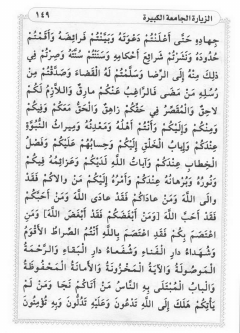 الزيارة الجامعة الكبيرة ١٤٩
جِهادِهِ حَتّى أَعْلَنْتُمْ دَعْوَتَهُ وَبَيَّنْتُمْ فَرائِضَهُ وَأَقَمْتُمْ
حُدُودَهُ وَنَشَرْتُمْ شَرائِعَ أَحْكامِهِ وَسَنَنْتُمْ سُنَّتَهُ وَصِرْتُمْ فِي
ذلِكَ مِنْهُ إِلَى الرِّضا وَسَلَّمْتُمْ لَهُ الْقَضاءَ وَصَدَّقْتُمْ مِنْ
رُسُلِهِ مَنْ مَضى فَالرّاغِبُ عَنْكُمْ مارِقٌ وَاللّازِمُ لَكُمْ
لاحِقٌ وَالْمُقَصِّرُ فِي حَقِّكُمْ زاهِقٌ وَالْحَقُّ مَعَكُمْ وَفِيكُمْ
وَمِنْكُمْ وَإِلَيْكُمْ وَأَنْتُمْ أَهْلُهُ وَمَعْدِنُهُ وَمِيراثُ النُّبُوَّةِ
عِنْدَكُمْ وَإِيابُ الْخَلْقِ إِلَيْكُمْ وَحِسابُهُمْ عَلَيْكُمْ وَفَصْلُ
الْخِطابِ عِنْدَكُمْ وَآياتُ اللّهِ لَدَيْكُمْ وَعَزائِمُهُ فِيكُمْ
وَنُورُهُ وَبُرْهانُهُ عِنْدَكُمْ وَأَمْرُهُ إِلَيْكُمْ مَنْ والاكُمْ فَقَدْ
والَى اللّهَ وَمَنْ عاداكُمْ فَقَدْ عادَى اللّهَ وَمَنْ أَحَبَّكُمْ
فَقَدْ أَحَبَّ اللّهَ [وَمَنْ أَبْغَضَكُمْ فَقَدْ أَبْغَضَ اللّهَ] وَمَنِ
اعْتَصَمَ بِكُمْ فَقَدِ اعْتَصَمَ بِاللّهِ أَنْتُمُ الصِّراطُ الْأَقْوَمُ
وَشُهَداءُ دارِ الْفَناءِ وَشُفَعاءُ دارِ الْبَقاءِ وَالرَّحْمَةُ
الْمَوْصُولَةُ وَالْآيَةُ الْمَخْزُونَةُ وَالْأَمانَةُ الْمَحْفُوظَةُ
وَالْبابُ الْمُبْتَلى بِهِ النّاسُ مَنْ أَتاكُمْ نَجا وَمَنْ لَمْ
يَأْتِكُمْ هَلَكَ إِلَى اللّهِ تَدْعُونَ وَعَلَيْهِ تَدُلُّونَ وَبِهِ تُؤْمِنُونَ